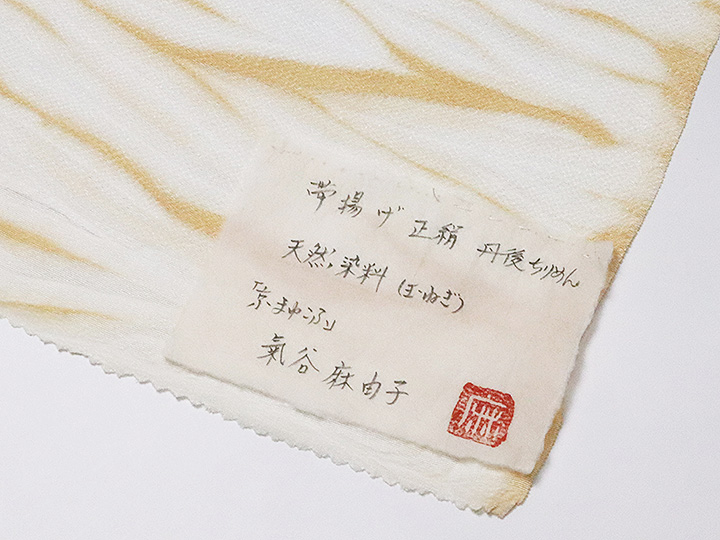 帯揚げ 正絹 丹後ちりめん
天然染料(玉ねぎ)
「京まゆこふ」
氣谷麻由子
麻